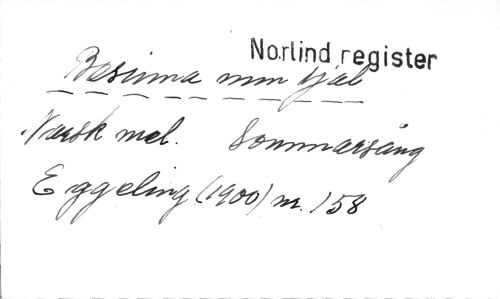 Norlind register
Besinna min själ
Norsk mel. Sommarsång
Eggeling (1900) nr. 158